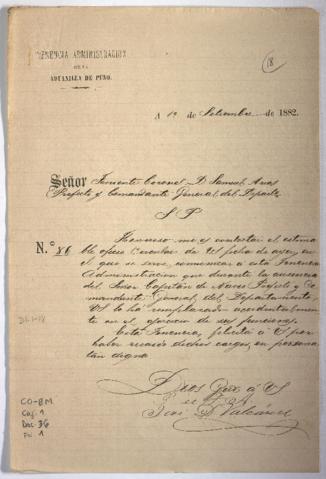 TENENCIA ADMINISTRACION
DE LA
ADUANILLA DE PUNO.
18
A 12 de Setiembre de 1882.
Señor Teniente Coronel D. Samuel Arias
Prefecto y Comandante General del Depart
S P
N.° 86 Honroso me es contestar el estima
ble oficio circular de US fecha de ayer, en
el que se sirve comunicar a esta Tenencia
Administracion que durante la ausencia
del Señor Capitán de Navio Prefecto y Co
mandante General del Departamento,
US lo ha remplazado accidentalmen
te en el ejercicio de sus funciones.
Esta Tenencia, felicita á S por
haber recaido dichos cargos, en persona
tan digna
Dios Gue á US
José Valcárcel
CO-BM
Caj. 1
Doc 36
Fol 1